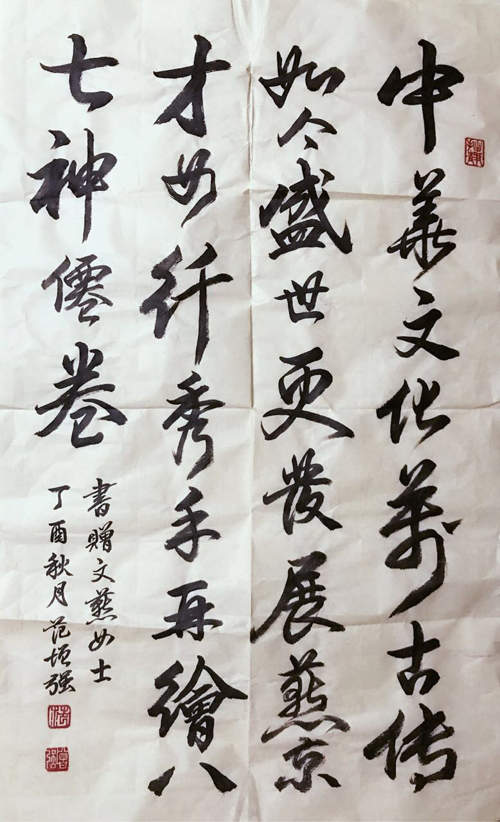 中華文化萬古传
如今盛世更發展燕京
才女纤秀手再繪八
七神僊卷
書贈文燕女士
丁酉秋月范垣强